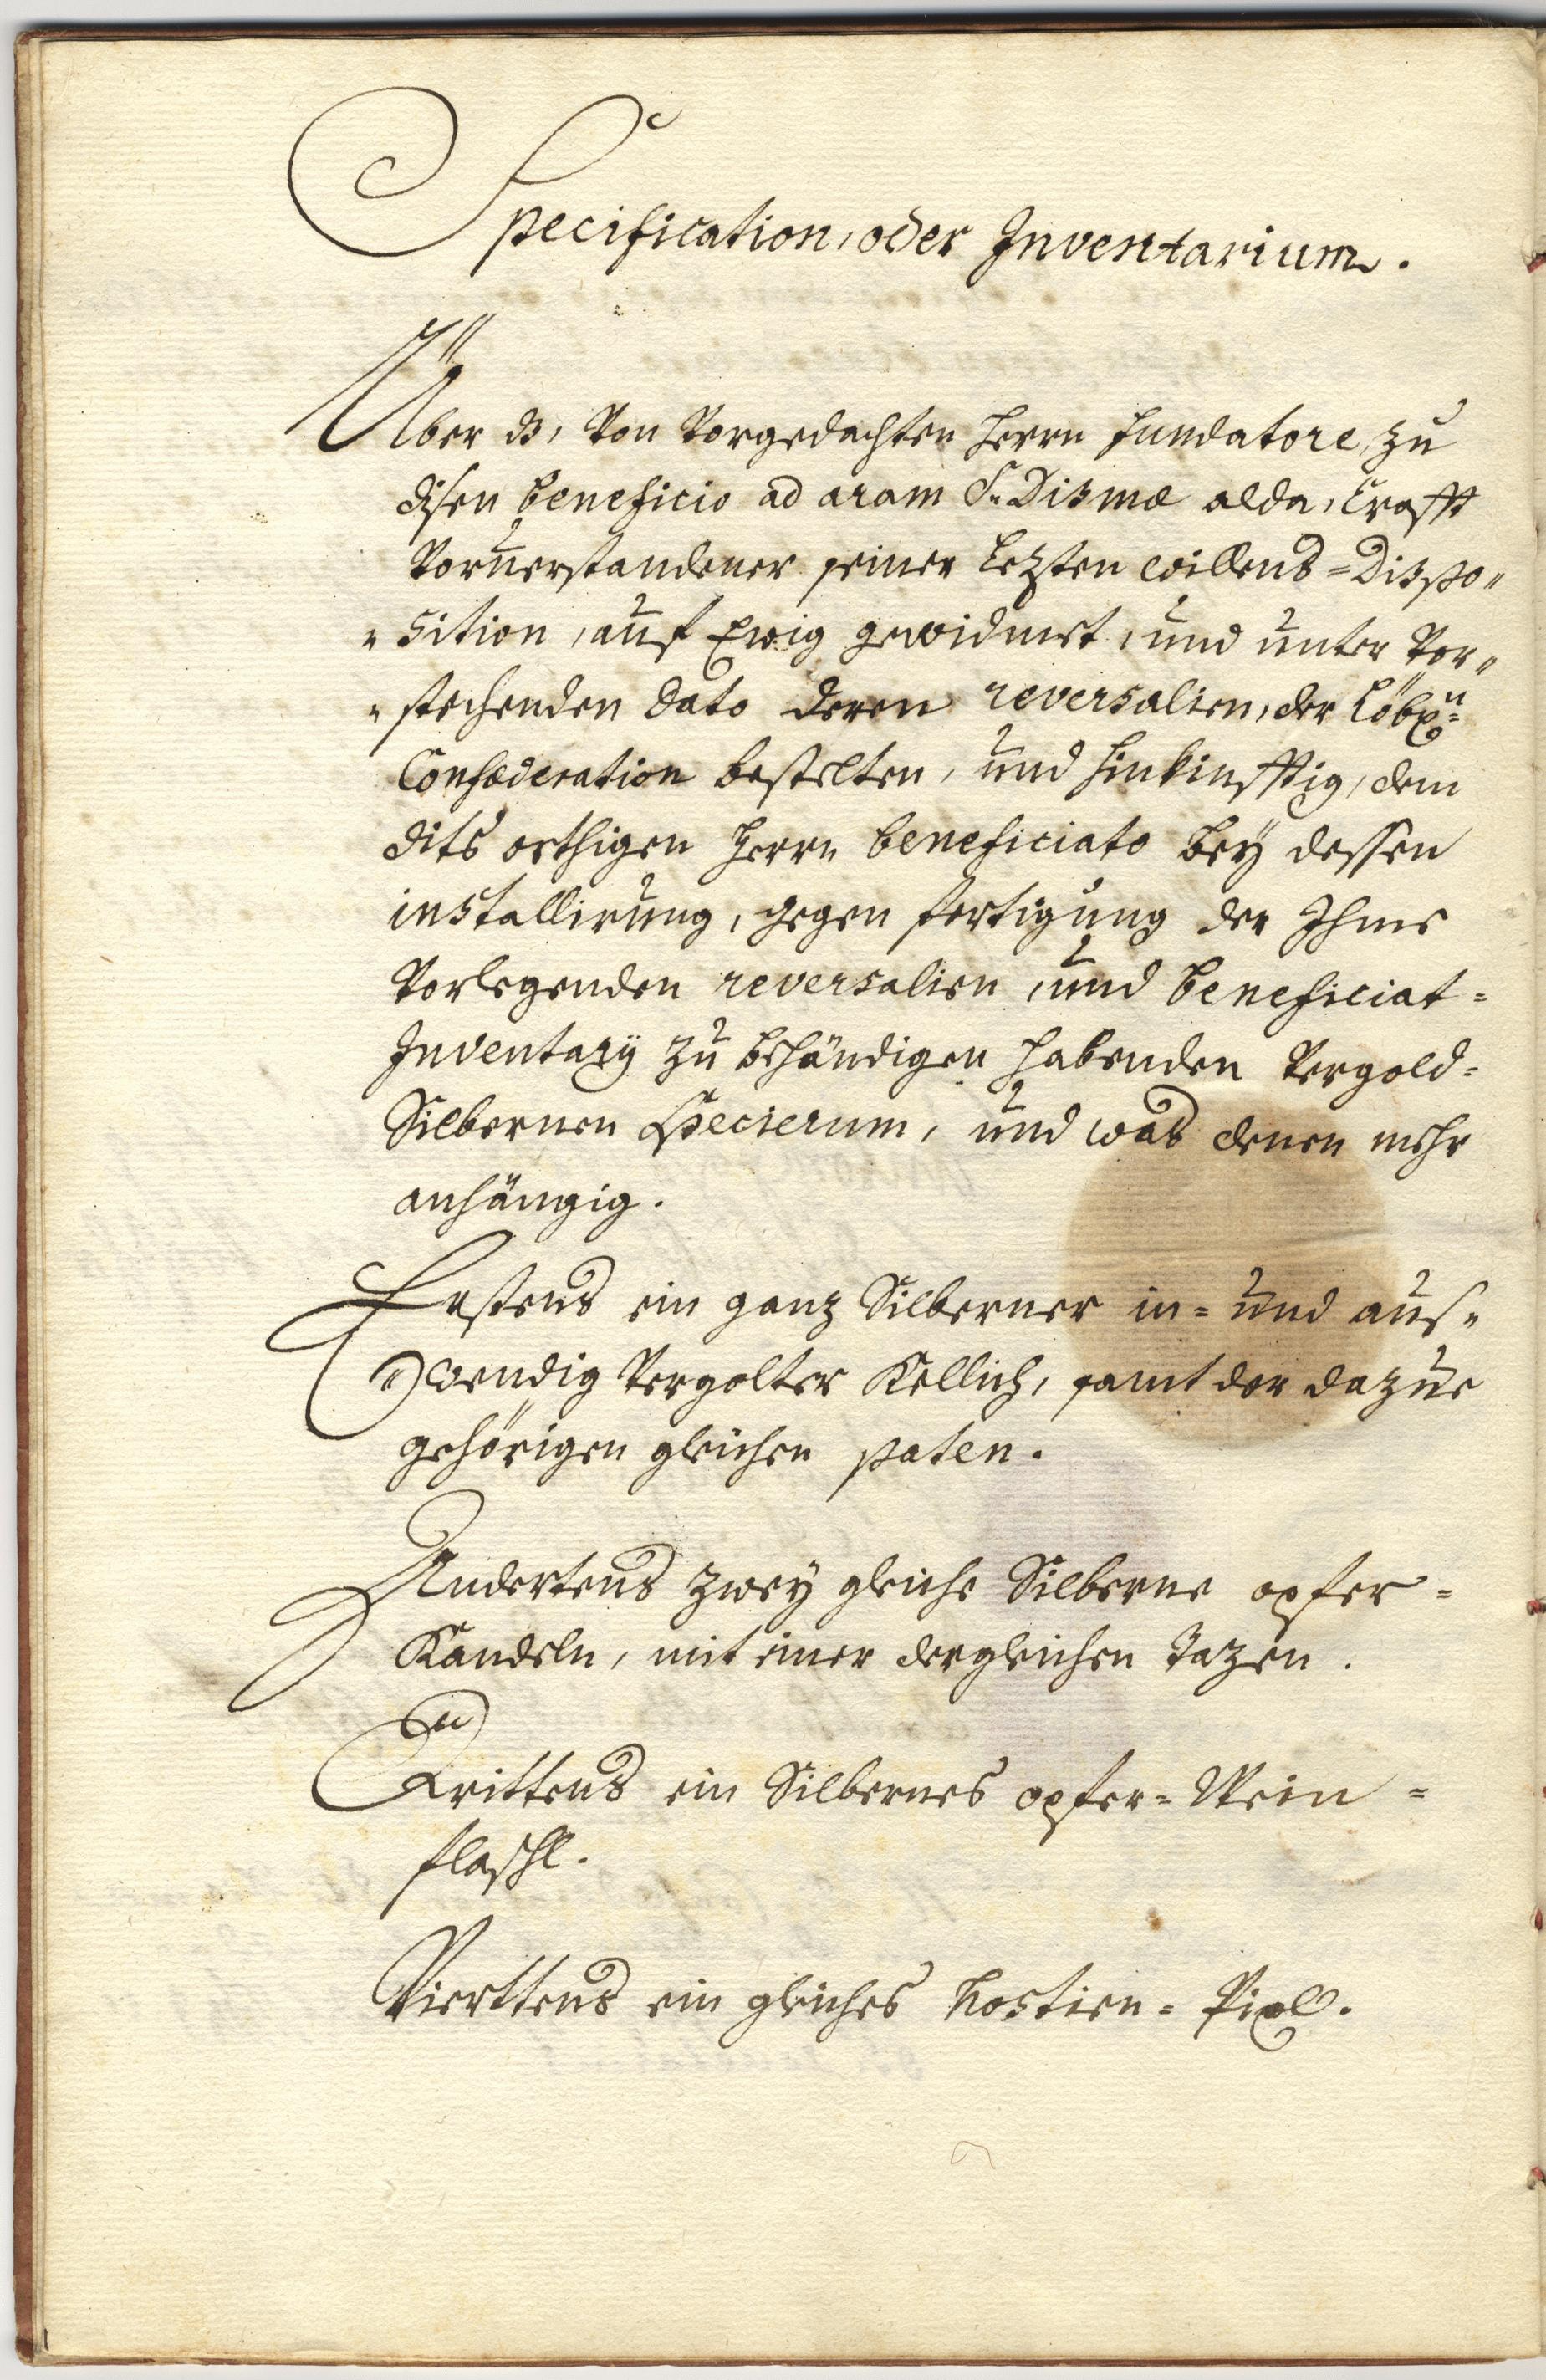 Specification, oder Inventarium.
Über ds, Von Vorgedachten Herrn Fundatore, zu
disen beneficio ad aram S. Dismæ alda, Crafft
Vorverstandener seiner Lezten willens=Dispo„
„sition, auf Ewig gewidmet, und unter Vor„
„stehenden Dato deren reversalien, der Löbln=
Confœderation bestelten, und hinkinfftig, dem
dits orthigen Herrn beneficiato bey dessen
installirung, gegen fertigung der Ihme
Vorlegenden reversalien, und beneficiat=
Inventarÿ zu behändigen habenden Vergold=
Silbernen Specierum, und was denen mehr
anhängig.
Erstens ein ganz Silberner in= und aus„
wendig Vergolter Kellich, samt der dazue
gehörigen gleichen paten.
Andertens zwey gleiche Silberne opfer=
Kandeln, mit einer dergleichen Tazen.
Drittens ein Silbernes opfer=Wein=
flaschl.
Vierttens ein gleiches hostien=Pixl.